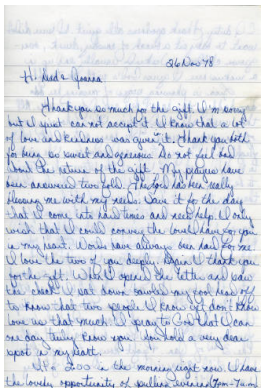 26 Nov 78
Hi Dad & Joanna
Thank you so much for the gift. I'm sorry
but I just can not accept it. I know that a lot
of love and kindness was given it. Thank you both
for being so sweet and generous. Do not feel bad
about the return of the gift. My prayers have
been answered two fold. The Lord has been really
blessing me with my needs. Save it for the day
that I come into hard times and need help. I only
wish that I could convey the love I have for you
in my heart. Words have always been hard for me.
I love the two of you deeply. Again I thank you
for the gift. When I opened the letter and saw
the check I sat down bawled my fool head off
to know that two people I know yet don't know
love us that much. I pray to God that I can
one day truly know you. You hold a very dear
spot in my heart.
It's 2:00 in the morning right now. I have
the lovely opportunity of pulling evenings 7pm-7am